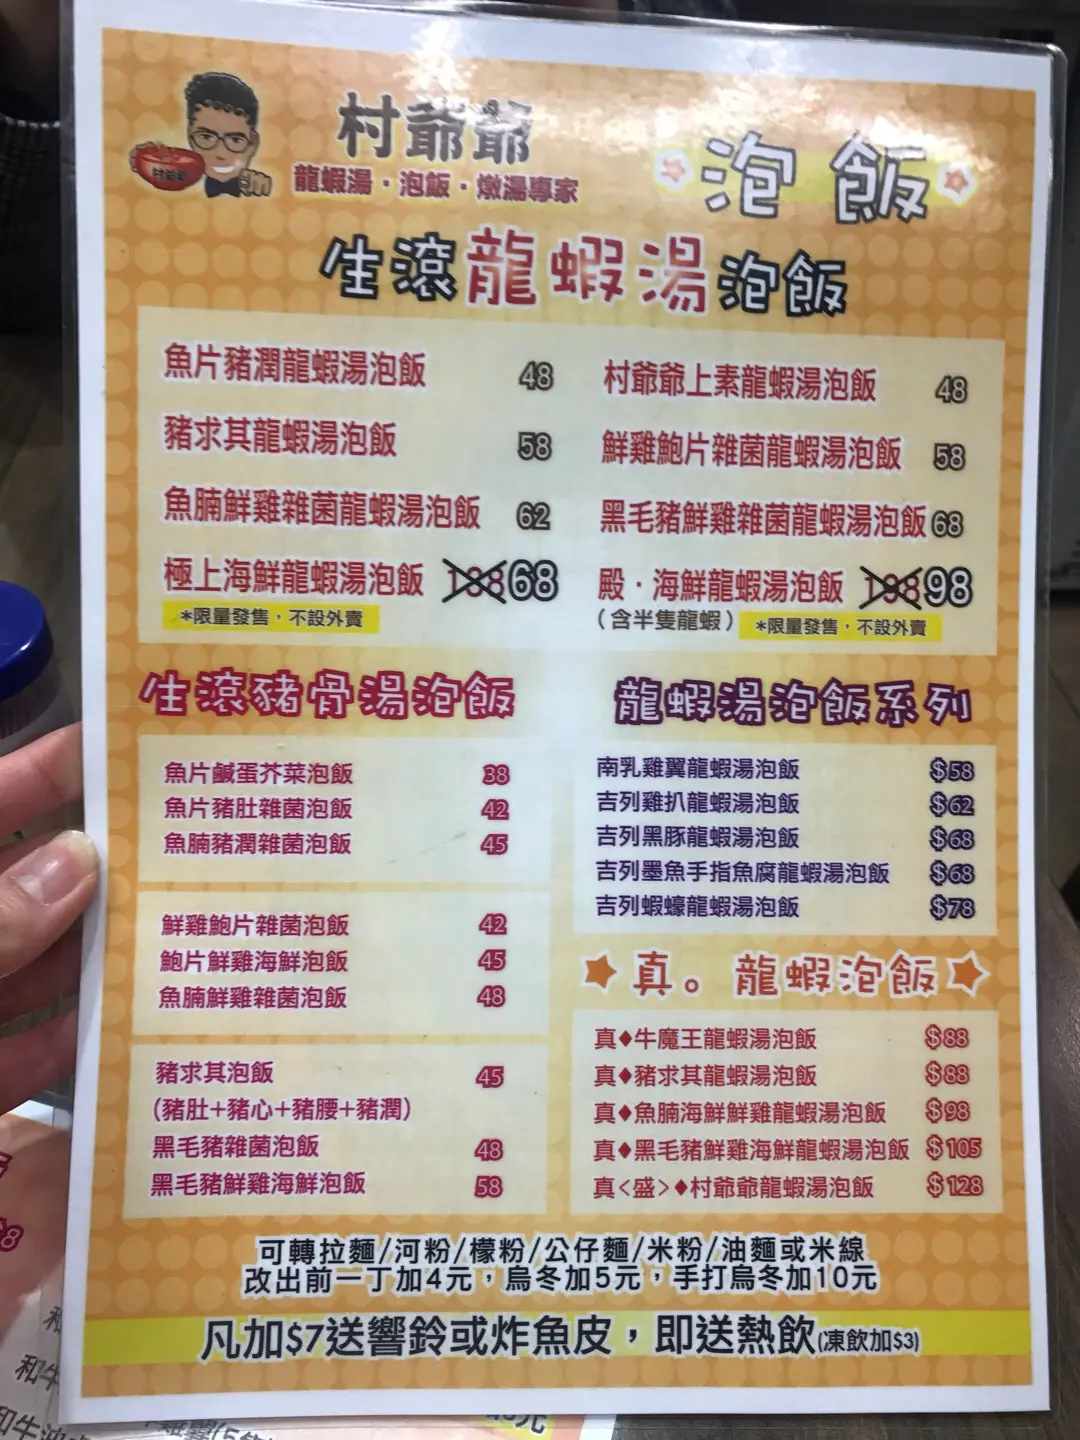 村爺爺
村爺爺
龍蝦湯・泡飯・燉湯專家
泡飯
生滾龍蝦湯泡飯
魚片豬潤龍蝦湯泡飯 48
豬求其龍蝦湯泡飯 58
魚腩鮮雞雜菌龍蝦湯泡飯 62
極上海鮮龍蝦湯泡飯 188 68
*限量發售，不設外賣
村爺爺上素龍蝦湯泡飯 48
鮮雞鮑片雜菌龍蝦湯泡飯 58
黑毛豬鮮雞雜菌龍蝦湯泡飯 68
殿・海鮮龍蝦湯泡飯 198 98
(含半隻龍蝦) *限量發售，不設外賣
生滾豬骨湯泡飯
魚片鹹蛋芥菜泡飯 38
魚片豬肚雜菌泡飯 42
魚腩豬潤雜菌泡飯 45
鮮雞鮑片雜菌泡飯 42
鮑片鮮雞海鮮泡飯 45
魚腩鮮雞雜菌泡飯 48
豬求其泡飯 45
(豬肚+豬心+豬腰+豬潤)
黑毛豬雜菌泡飯 48
黑毛豬鮮雞海鮮泡飯 58
龍蝦湯泡飯系列
南乳雞翼龍蝦湯泡飯 $58
吉列雞扒龍蝦湯泡飯 $62
吉列黑豚龍蝦湯泡飯 $68
吉列墨魚手指魚腐龍蝦湯泡飯 $68
吉列蝦蠔龍蝦湯泡飯 $78
真。龍蝦泡飯
真♦牛魔王龍蝦湯泡飯 $88
真♦豬求其龍蝦湯泡飯 $88
真♦魚腩海鮮鮮雞龍蝦湯泡飯 $98
真♦黑毛豬鮮雞海鮮龍蝦湯泡飯 $105
真<盛>♦村爺爺龍蝦湯泡飯 $128
可轉拉麵/河粉/檬粉/公仔麵/米粉/油麵或米線
改出前一丁加4元，烏冬加5元，手打烏冬加10元
凡加$7送響鈴或炸魚皮，即送熱飲(凍飲加$3)
和牛